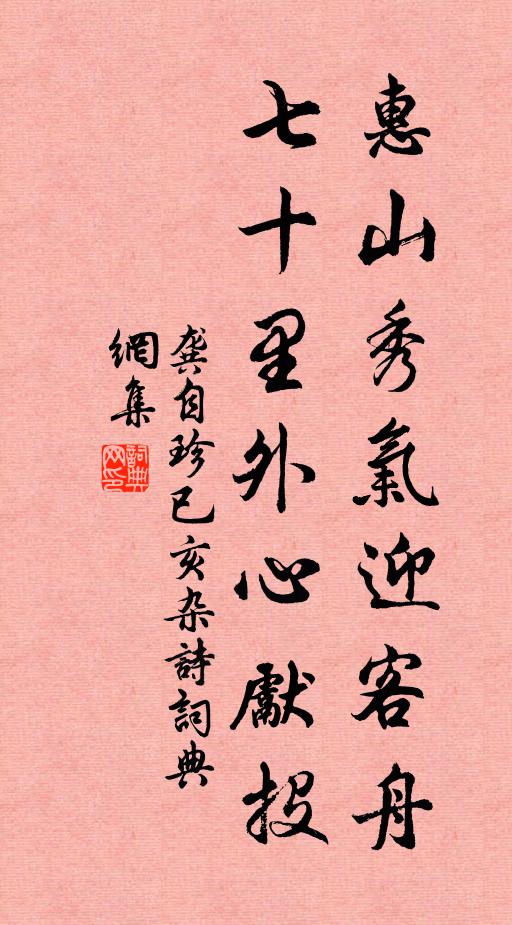 惠山秀氣迎客舟
七十里外心獻投
龔自珍己亥杂詩詞典
網集
詞典網印